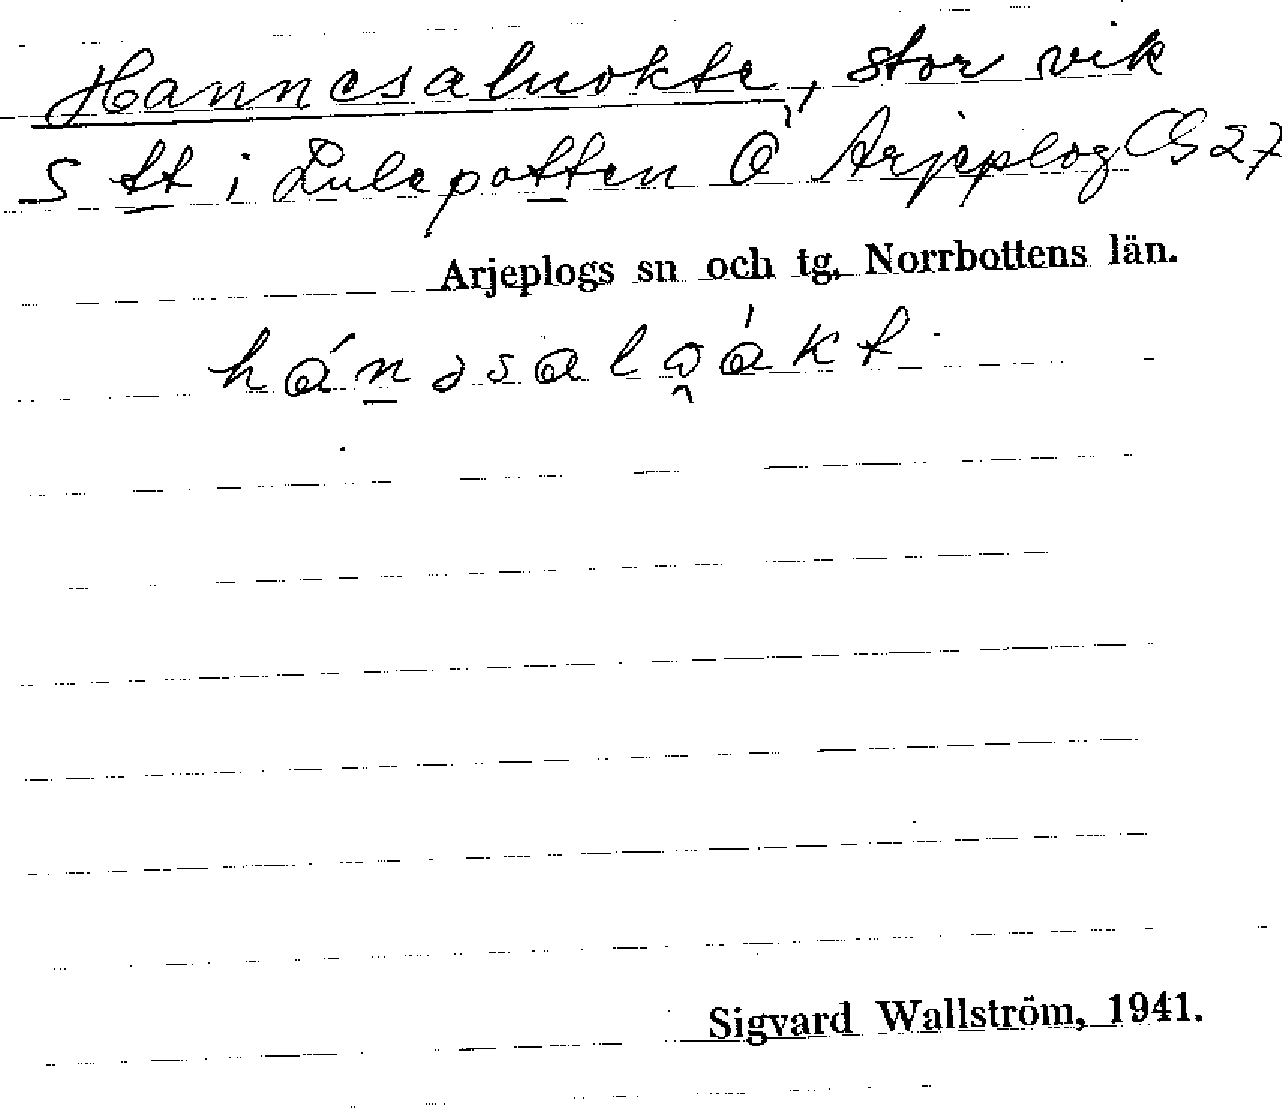 Hannesaluokte, stor vik
S tt i Lulepotten Ö Arjeplog CG 27
Arjeplogs sn och tg, Norrbottens län.
hánəsalo̯ákt.
Sigvard Wallström, 1941.